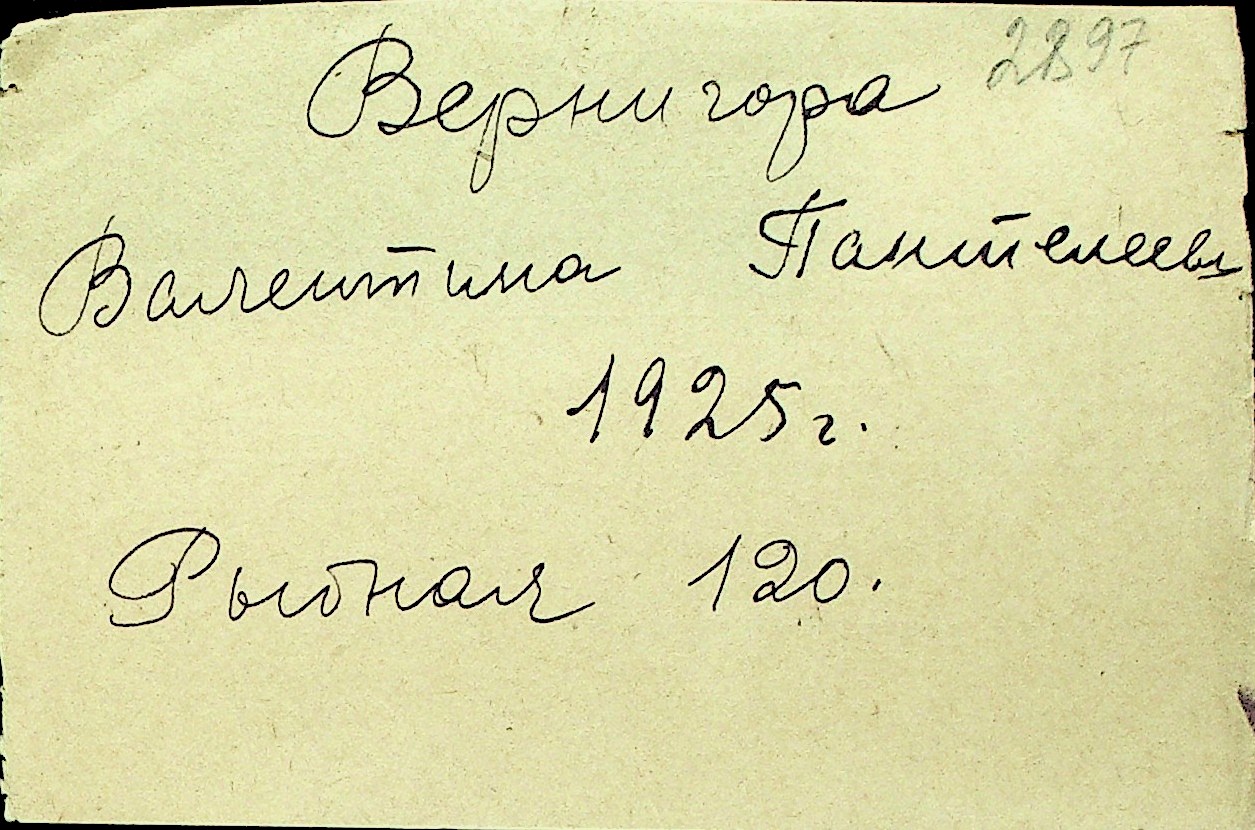 2897
Вернигора
Валентина Пантелеевн
1925 г.
Рыбная 120.